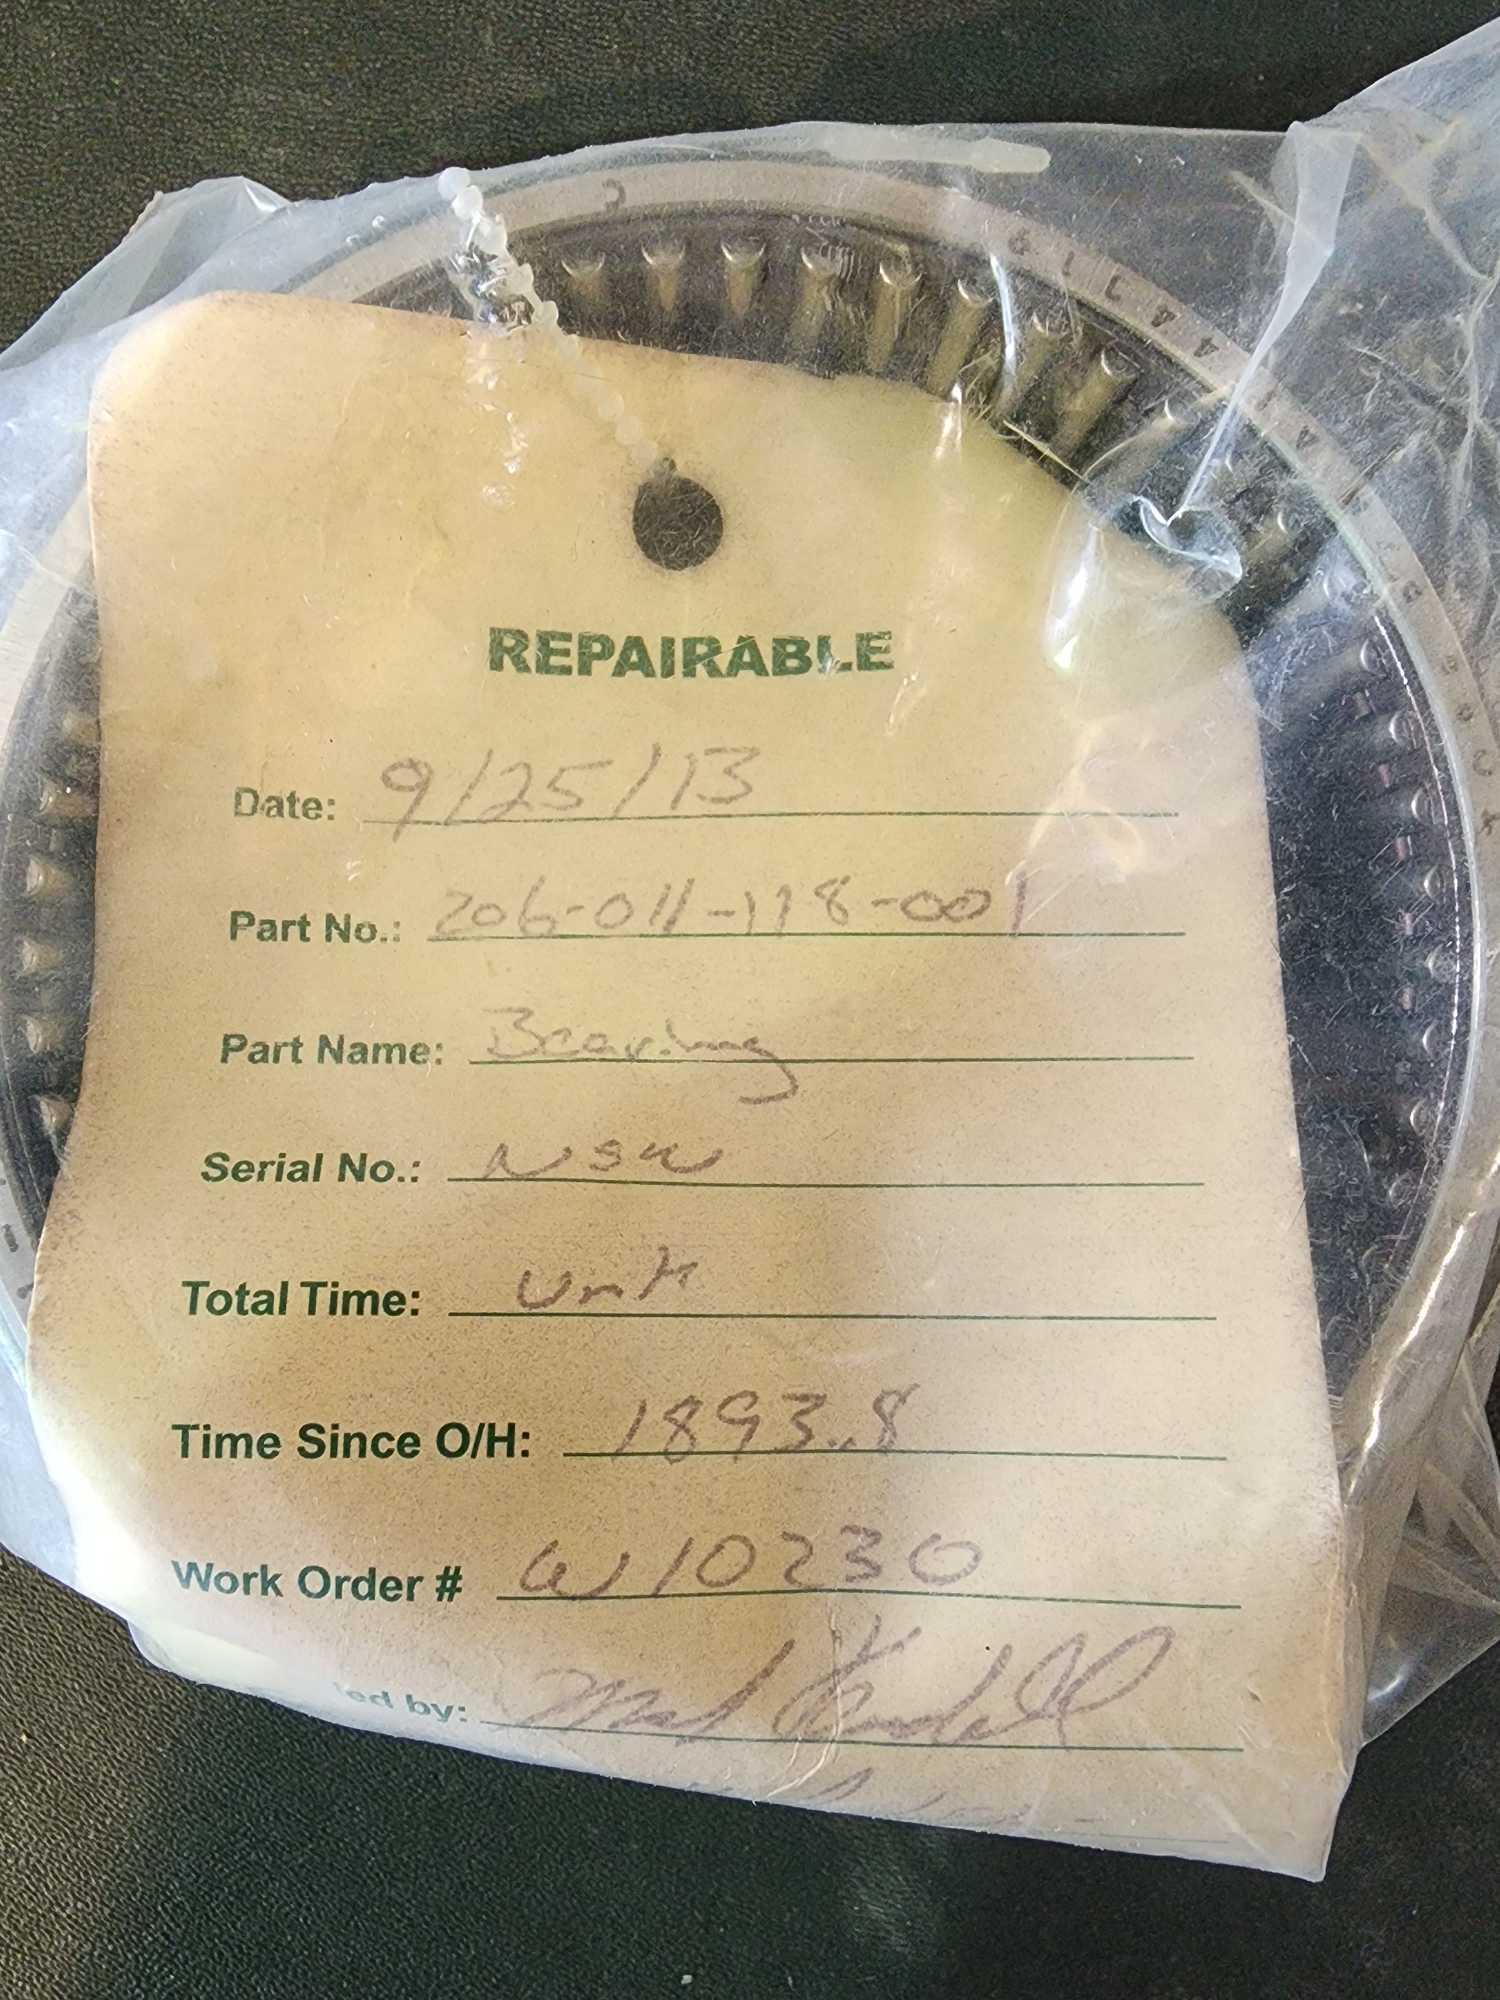 REPAIRABLE
Date: 9/25/13
Part No.: 206-011-118-001
Part Name: Bearing
Serial No.: NSN
Total Time: Unk
Time Since O/H: 1893.8
Work Order # W10230
by: